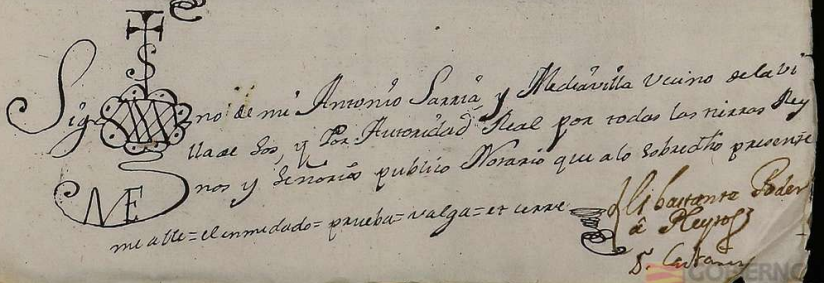 S
Sig no de mi Antonio Sarria, y Mediavilla Vecino de la Vi
lla de Sos, y Por Autoridad Real por todas las tierras Rey
nos y Señorios publico Notario que a lo sobredho presente
NE
me alle = el enmedado = prueba = valga = et cerre
bastante Poder
de Pleytos
GOBIERNO